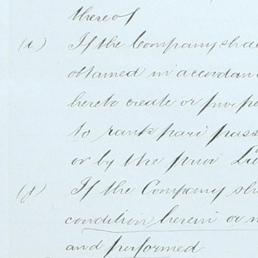 thereof
(e) If the Company shal
obtained in accordan
hereto create or purpo
to rank pari pass
or by the prior Lie
(f) If the Company sh
condition herein or
and performed